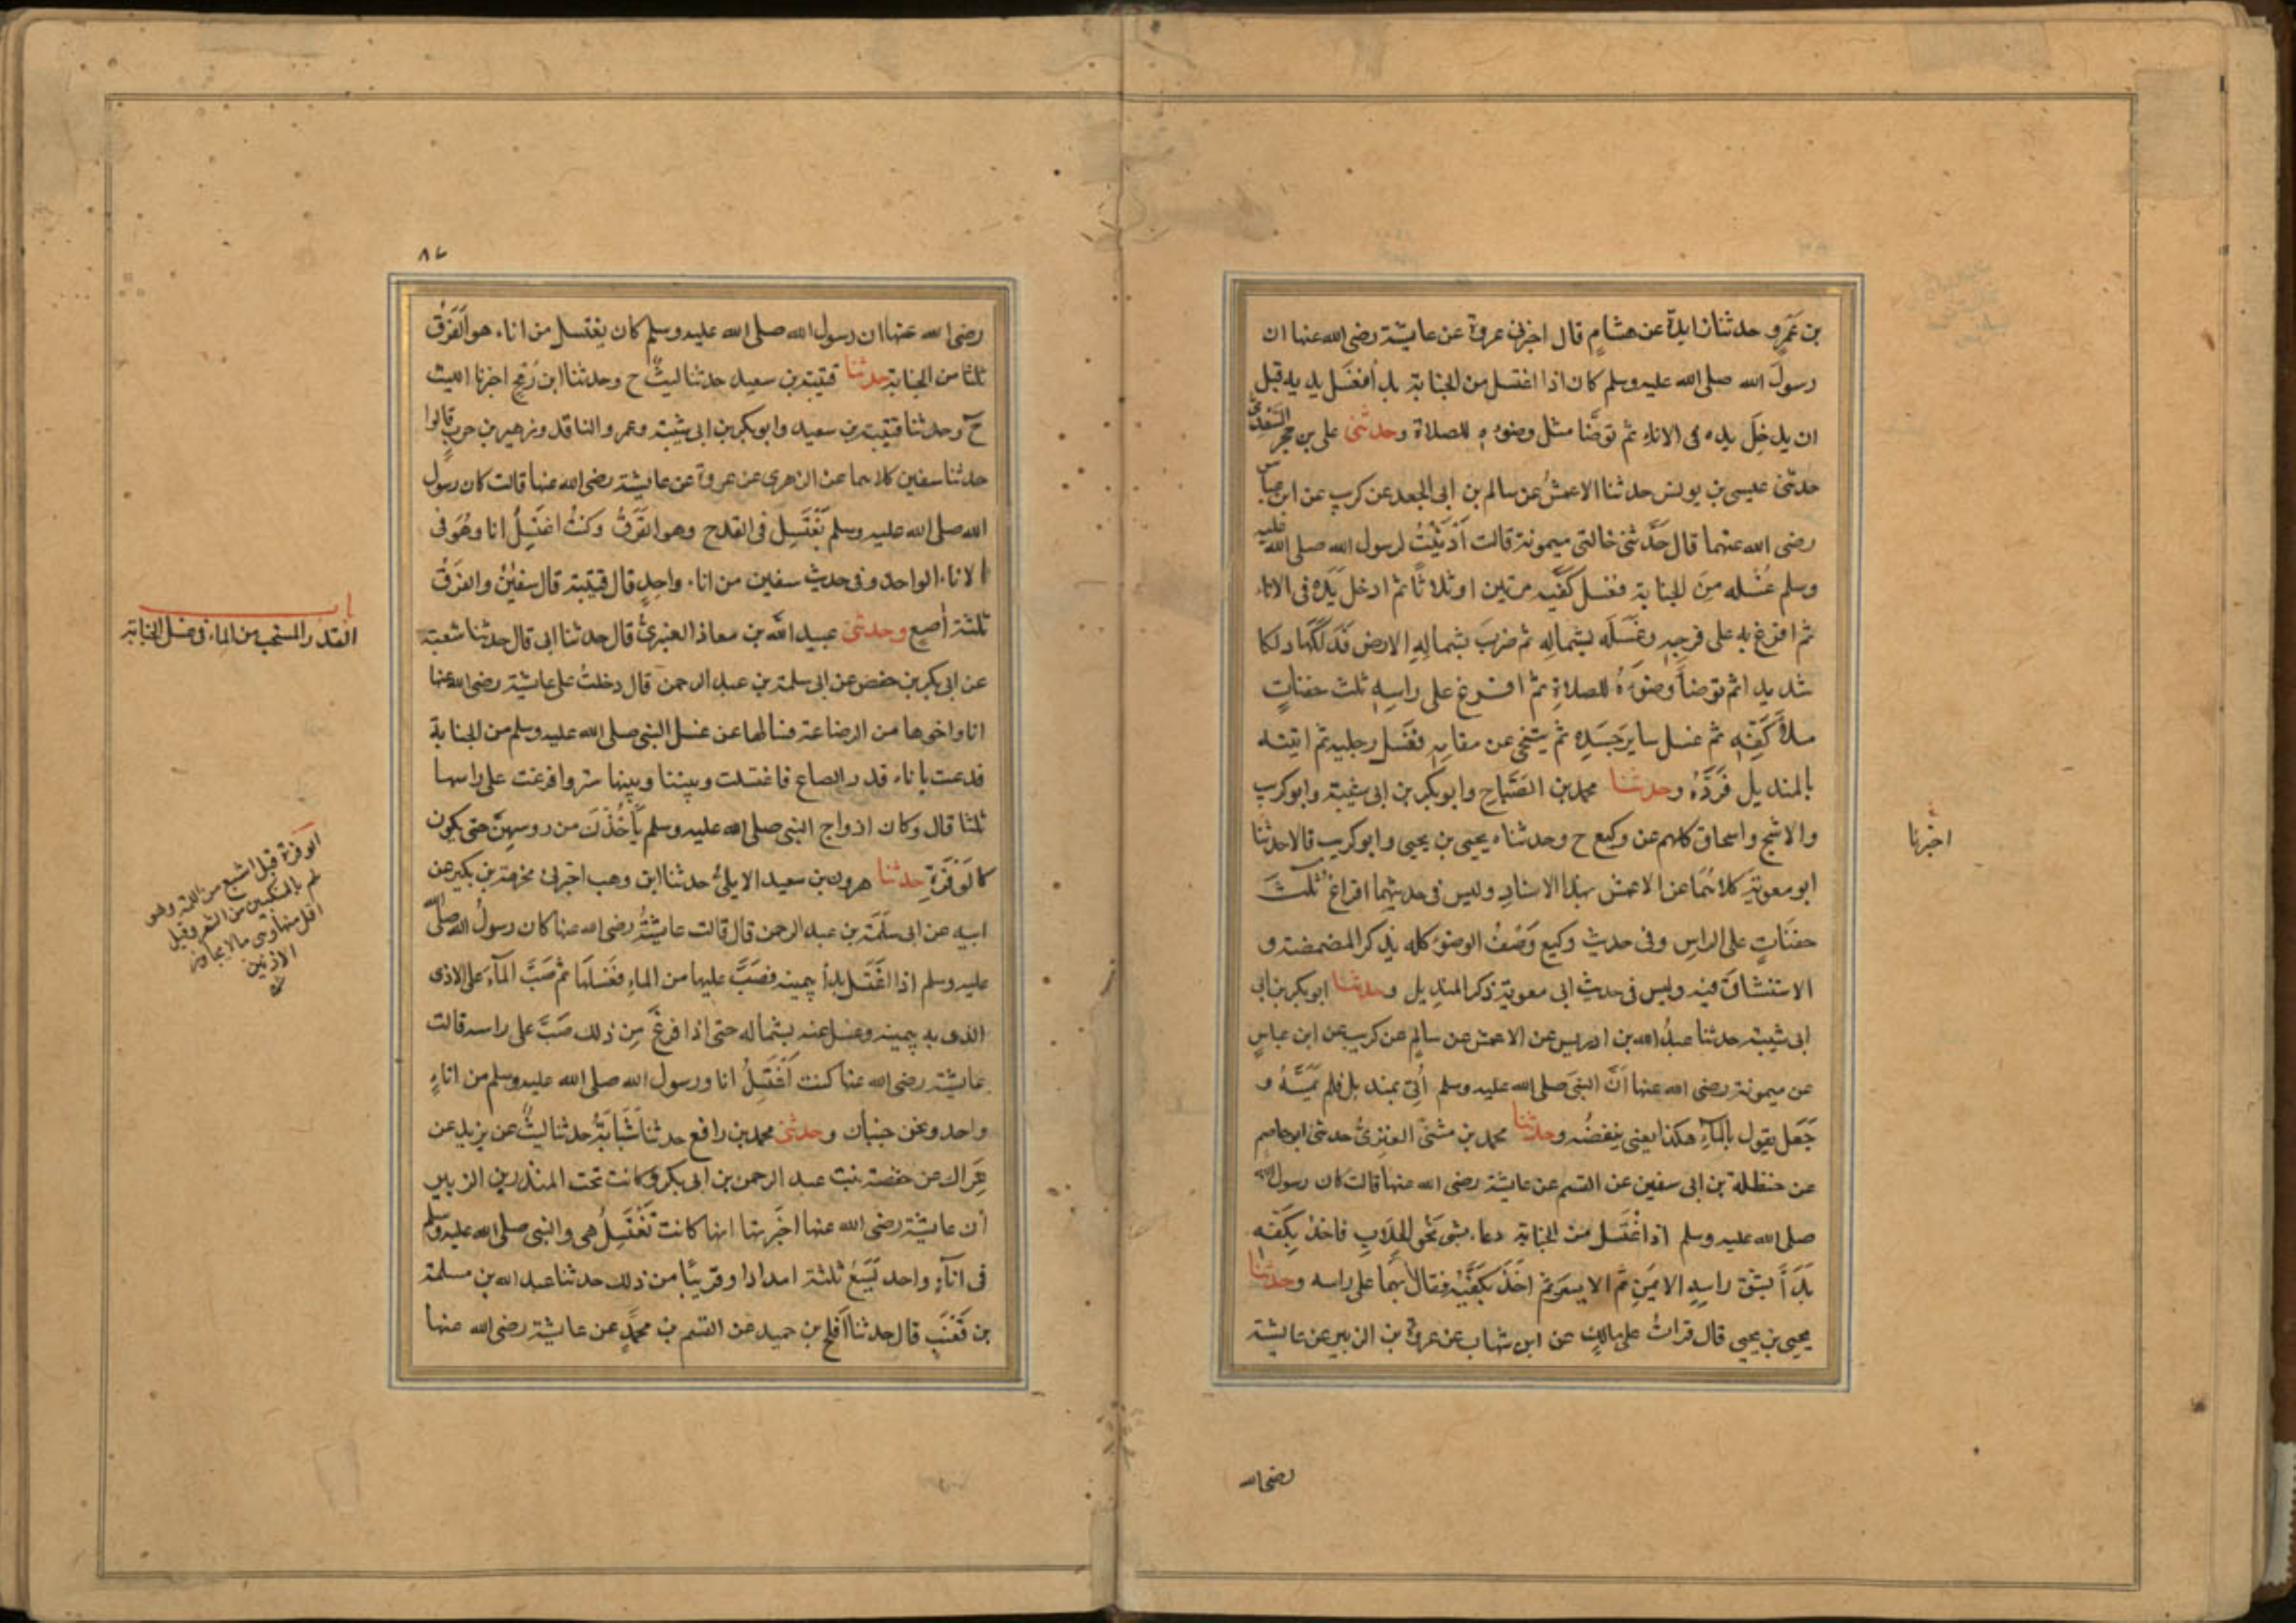 بن عمرو حدثنا زايدة عن هشام قال اخبرني عروة عن عايشة رضى الله عنها ان
رسول الله صلى الله عليه وسلم كان اذا اغتسل من الجنابة بدأ فغسل يديه قبل
ان يدخل يده فى الاناء ثم توضأ مثل وضوءه للصلاة وحدثنى على بن حجر السعدى
حدثنى عيسى بن يونس حدثنا الاعمش عن سالم بن ابى الجعد عن كريب عن ابن عباس
رضى الله عنهما قال حدثتنى خالتى ميمونة قالت أدنيت لرسول الله صلى الله عليه
وسلم غسله من الجنابة فغسل كفيه مرتين او ثلاثا ثم ادخل يده فى الاناء
ثم افرغ به على فرجه وغسله بشماله ثم ضرب بشماله الارض فدلكها دلكا
شديدا ثم توضأ وضوءه للصلاة ثم افرغ على راسه ثلث حفنات
ملأ كفه ثم غسل ساير جسده ثم يتنحى عن مقامه فغسل رجليه ثم اتيته
بالمنديل فرده وحدثنا محمد بن الصباح وابو بكر بن ابى شيبة وابو كريب
والاشج واسحاق كلهم عن وكيع ح وحدثناه يحيى بن يحيى وابو كريب قالا حدثنا
ابو معوية كلاهما عن الاعمش بهذا الاسناد وليس فى حديثهما افراغ ثلث
حفنات على الراس وفى حديث وكيع وصف الوضوء كله يذكر المضمضة و
الاستنشاق فيه وليس فى حديث ابى معوية ذكر المنديل وحدثنا ابو بكر بن ابى
ابى شيبة حدثنا عبد الله بن ادريس عن الاعمش عن سالم عن كريب عن ابن عباس
عن ميمونة رضى الله عنها أن النبى صلى الله عليه وسلم أتى بمنديل فلم يمسه و
جعل يقول بالماء هكذا يعنى ينفضه وحدثنا محمد بن مثنى العنزى حدثنى ابو عاصم
عن حنظلة بن ابى سفين عن القسم عن عايشة رضى الله عنها قالت كان رسول الله
صلى الله عليه وسلم اذا اغتسل من الجنابة دعا بشئ نحو الحلاب فاخذ بكفه
بدأ بشق راسه الايمن ثم الايسر ثم اخذ بكفيه فقال بهما على راسه وحدثنا
يحيى بن يحيى قال قرات على مالك عن ابن شهاب عن عروة بن الزبير عن عايشة
اخبرنا
رضى الله
٨٧
رضى الله عنها ان رسول الله صلى الله عليه وسلم كان يغتسل من اناء هو الفرق
ثلثا من الجنابة حدثنا قتيبة بن سعيد حدثنا ليث ح وحدثنا ابن رمح اخبرنا الليث
ح وحدثنا قتيبة بن سعيد وابو بكر بن ابى شيبة وعمرو الناقد وزهير بن حرب قالوا
حدثنا سفين كلاهما عن الزهرى عن عروة عن عايشة رضى الله عنها قالت كان رسول
الله صلى الله عليه وسلم يغتسل فى القدح وهو الفرق وكنت اغتسل انا وهو فى
الاناء الواحد وفى حديث سفين من اناء واحد قال قتيبة قال سفين والفرق
ثلثة أصع وحدثنى عبيد الله بن معاذ العنبرى قال حدثنا ابى قال حدثنا شعبة
عن ابى بكر بن حفص عن ابى سلمة بن عبد الرحمن قال دخلت على عايشة رضى الله عنها
انا واخوها من الرضاعة فسالها عن غسل النبى صلى الله عليه وسلم من الجنابة
فدعت باناء قدر الصاع فاغتسلت وبيننا وبينها ستر وافرغت على راسها
ثلثا قال وكان ازواج النبى صلى الله عليه وسلم يأخذن من روسهن حتى يكون
كالوفرة حدثنا هرون بن سعيد الايلى حدثنا ابن وهب اخبرنى مخرمة بن بكير عن
ابيه عن ابى سلمة بن عبد الرحمن قال قالت عايشة رضى الله عنها كان رسول الله صلى الله
عليه وسلم اذا اغتسل بدأ بيمينه فصب عليها من الماء فغسلها ثم صب الماء على الاذى
الذى به بيمينه وغسل عنه بشماله حتى اذا فرغ من ذلك صب على راسه قالت
عايشة رضى الله عنها كنت أغتسل انا ورسول الله صلى الله عليه وسلم من اناء
واحد ونحن جنبان وحدثنى محمد بن رافع حدثنا شبابة حدثنا ليث عن يزيد عن
عراك عن حفصة بنت عبد الرحمن بن ابى بكر وكانت تحت المنذر بن الزبير
أن عايشة رضى الله عنها اخبرتها انها كانت تغتسل هى والنبى صلى الله عليه وسلم
فى اناء واحد يسع ثلثة امداد او قريبا من ذلك حدثنا عبد الله بن مسلمة
بن قعنب قال حدثنا أفلح بن حميد عن القسم بن محمد عن عايشة رضى الله عنها
باب
القدر المستحب من الماء فى غسل الجنابة
الوفرة قيل اشبع من اللمة وهى
لم بالمنكبين من الشعر وقيل
اقل منها وهى مالا يجاوز
الاذنين